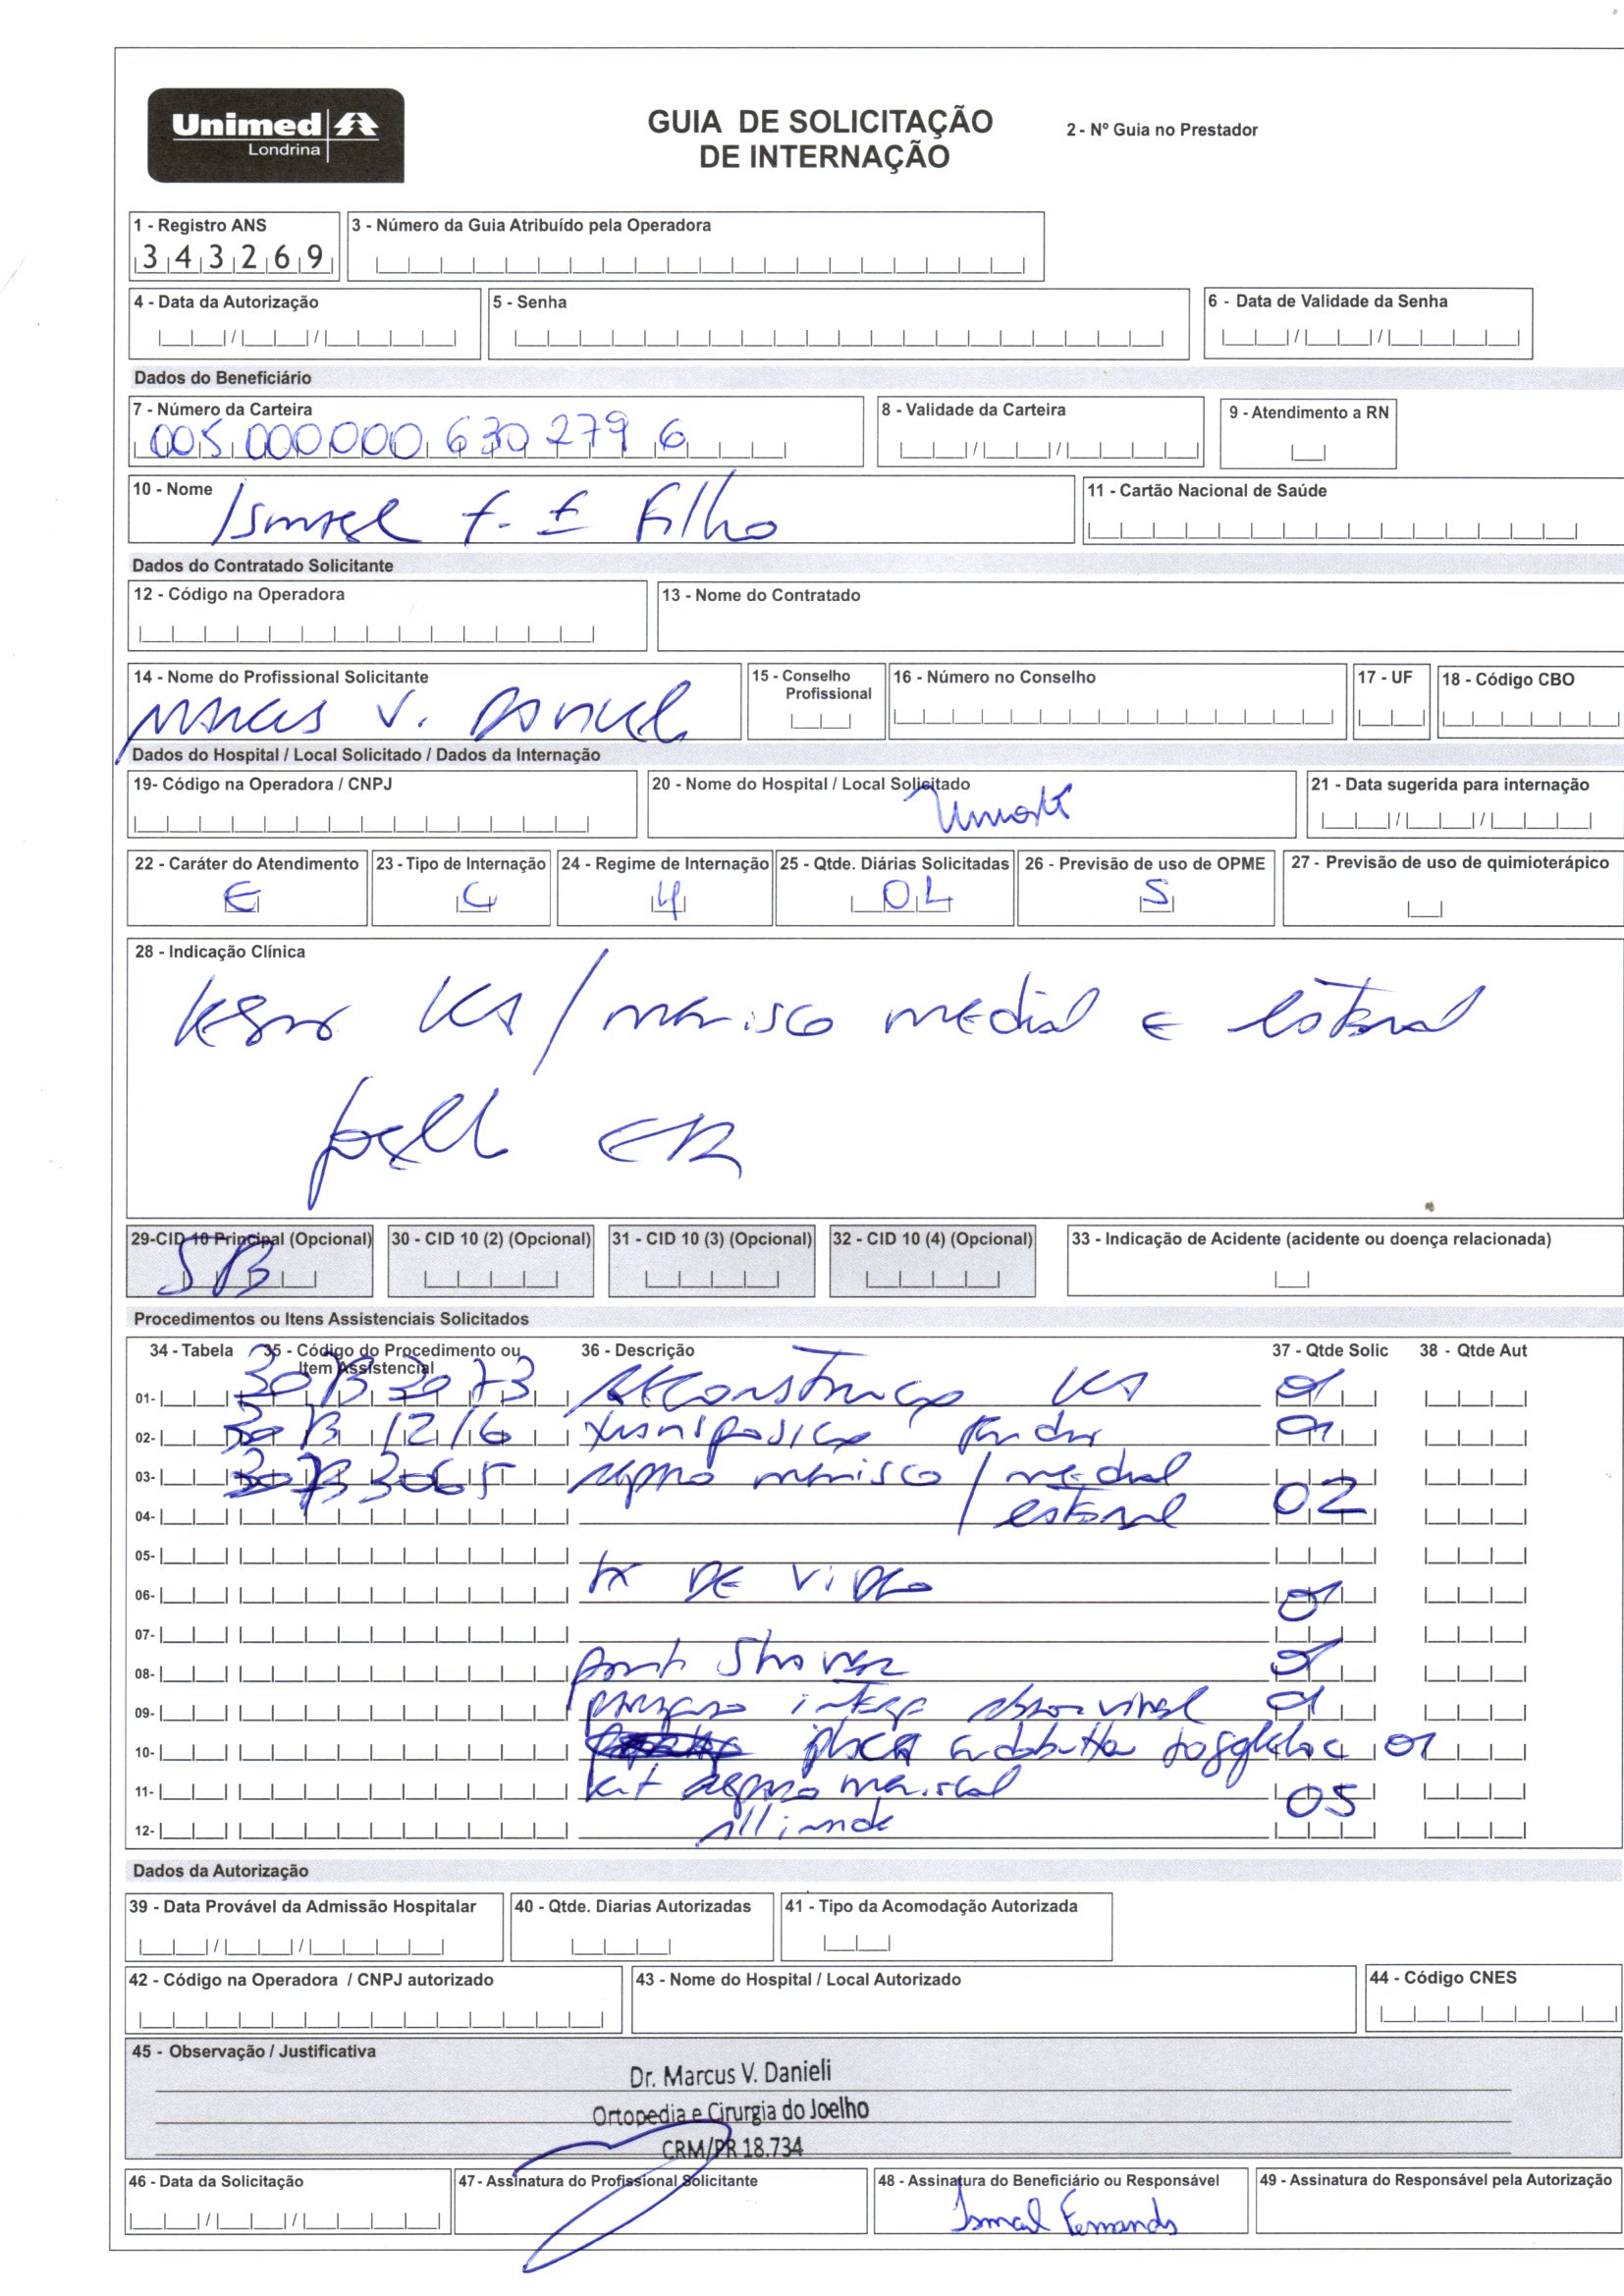 Unimed
Londrina
GUIA DE SOLICITAÇÃO
DE INTERNAÇÃO
2 - Nº Guia no Prestador
1 - Registro ANS
343269
3 - Número da Guia Atribuído pela Operadora
4 - Data da Autorização
5 - Senha
6 - Data de Validade da Senha
Dados do Beneficiário
7 - Número da Carteira
005 000000 630 279 6
8 - Validade da Carteira
9 - Atendimento a RN
10 - Nome
Ismael F. F Filho
11 - Cartão Nacional de Saúde
Dados do Contratado Solicitante
12 - Código na Operadora
13 - Nome do Contratado
14 - Nome do Profissional Solicitante
Marcus V. Danieli
15 - Conselho Profissional
16 - Número no Conselho
17 - UF
18 - Código CBO
Dados do Hospital / Local Solicitado / Dados da Internação
19- Código na Operadora / CNPJ
20 - Nome do Hospital / Local Solicitado
21 - Data sugerida para internação
22 - Caráter do Atendimento
E
23 - Tipo de Internação
C
24 - Regime de Internação
4
25 - Qtde. Diárias Solicitadas
01
26 - Previsão de uso de OPME
S
27 - Previsão de uso de quimioterápico
28 - Indicação Clínica
menisco medial e lateral
29-CID 10 Principal (Opcional)
30 - CID 10 (2) (Opcional)
31 - CID 10 (3) (Opcional)
32 - CID 10 (4) (Opcional)
33 - Indicação de Acidente (acidente ou doença relacionada)
Procedimentos ou Itens Assistenciais Solicitados
34 - Tabela
35 - Código do Procedimento ou Item Assistencial
36 - Descrição
37 - Qtde Solic
38 - Qtde Aut
01- 3073 3073 Reconstrução 01
02- 3073 1216 transposição 01
03- 3073 3065 reparo menisco / medial
04- / lateral 02
05-
06- tx DE VIDEO 01
07-
08- Shaver 01
09- 01
10- placa endobutton toggleloc 01
11- kit reparo meniscal 05
12-
Dados da Autorização
39 - Data Provável da Admissão Hospitalar
40 - Qtde. Diarias Autorizadas
41 - Tipo da Acomodação Autorizada
42 - Código na Operadora / CNPJ autorizado
43 - Nome do Hospital / Local Autorizado
44 - Código CNES
45 - Observação / Justificativa
Dr. Marcus V. Danieli
Ortopedia e Cirurgia do Joelho
CRM/PR 18.734
46 - Data da Solicitação
47 - Assinatura do Profissional Solicitante
48 - Assinatura do Beneficiário ou Responsável
Ismael Fernands
49 - Assinatura do Responsável pela Autorização